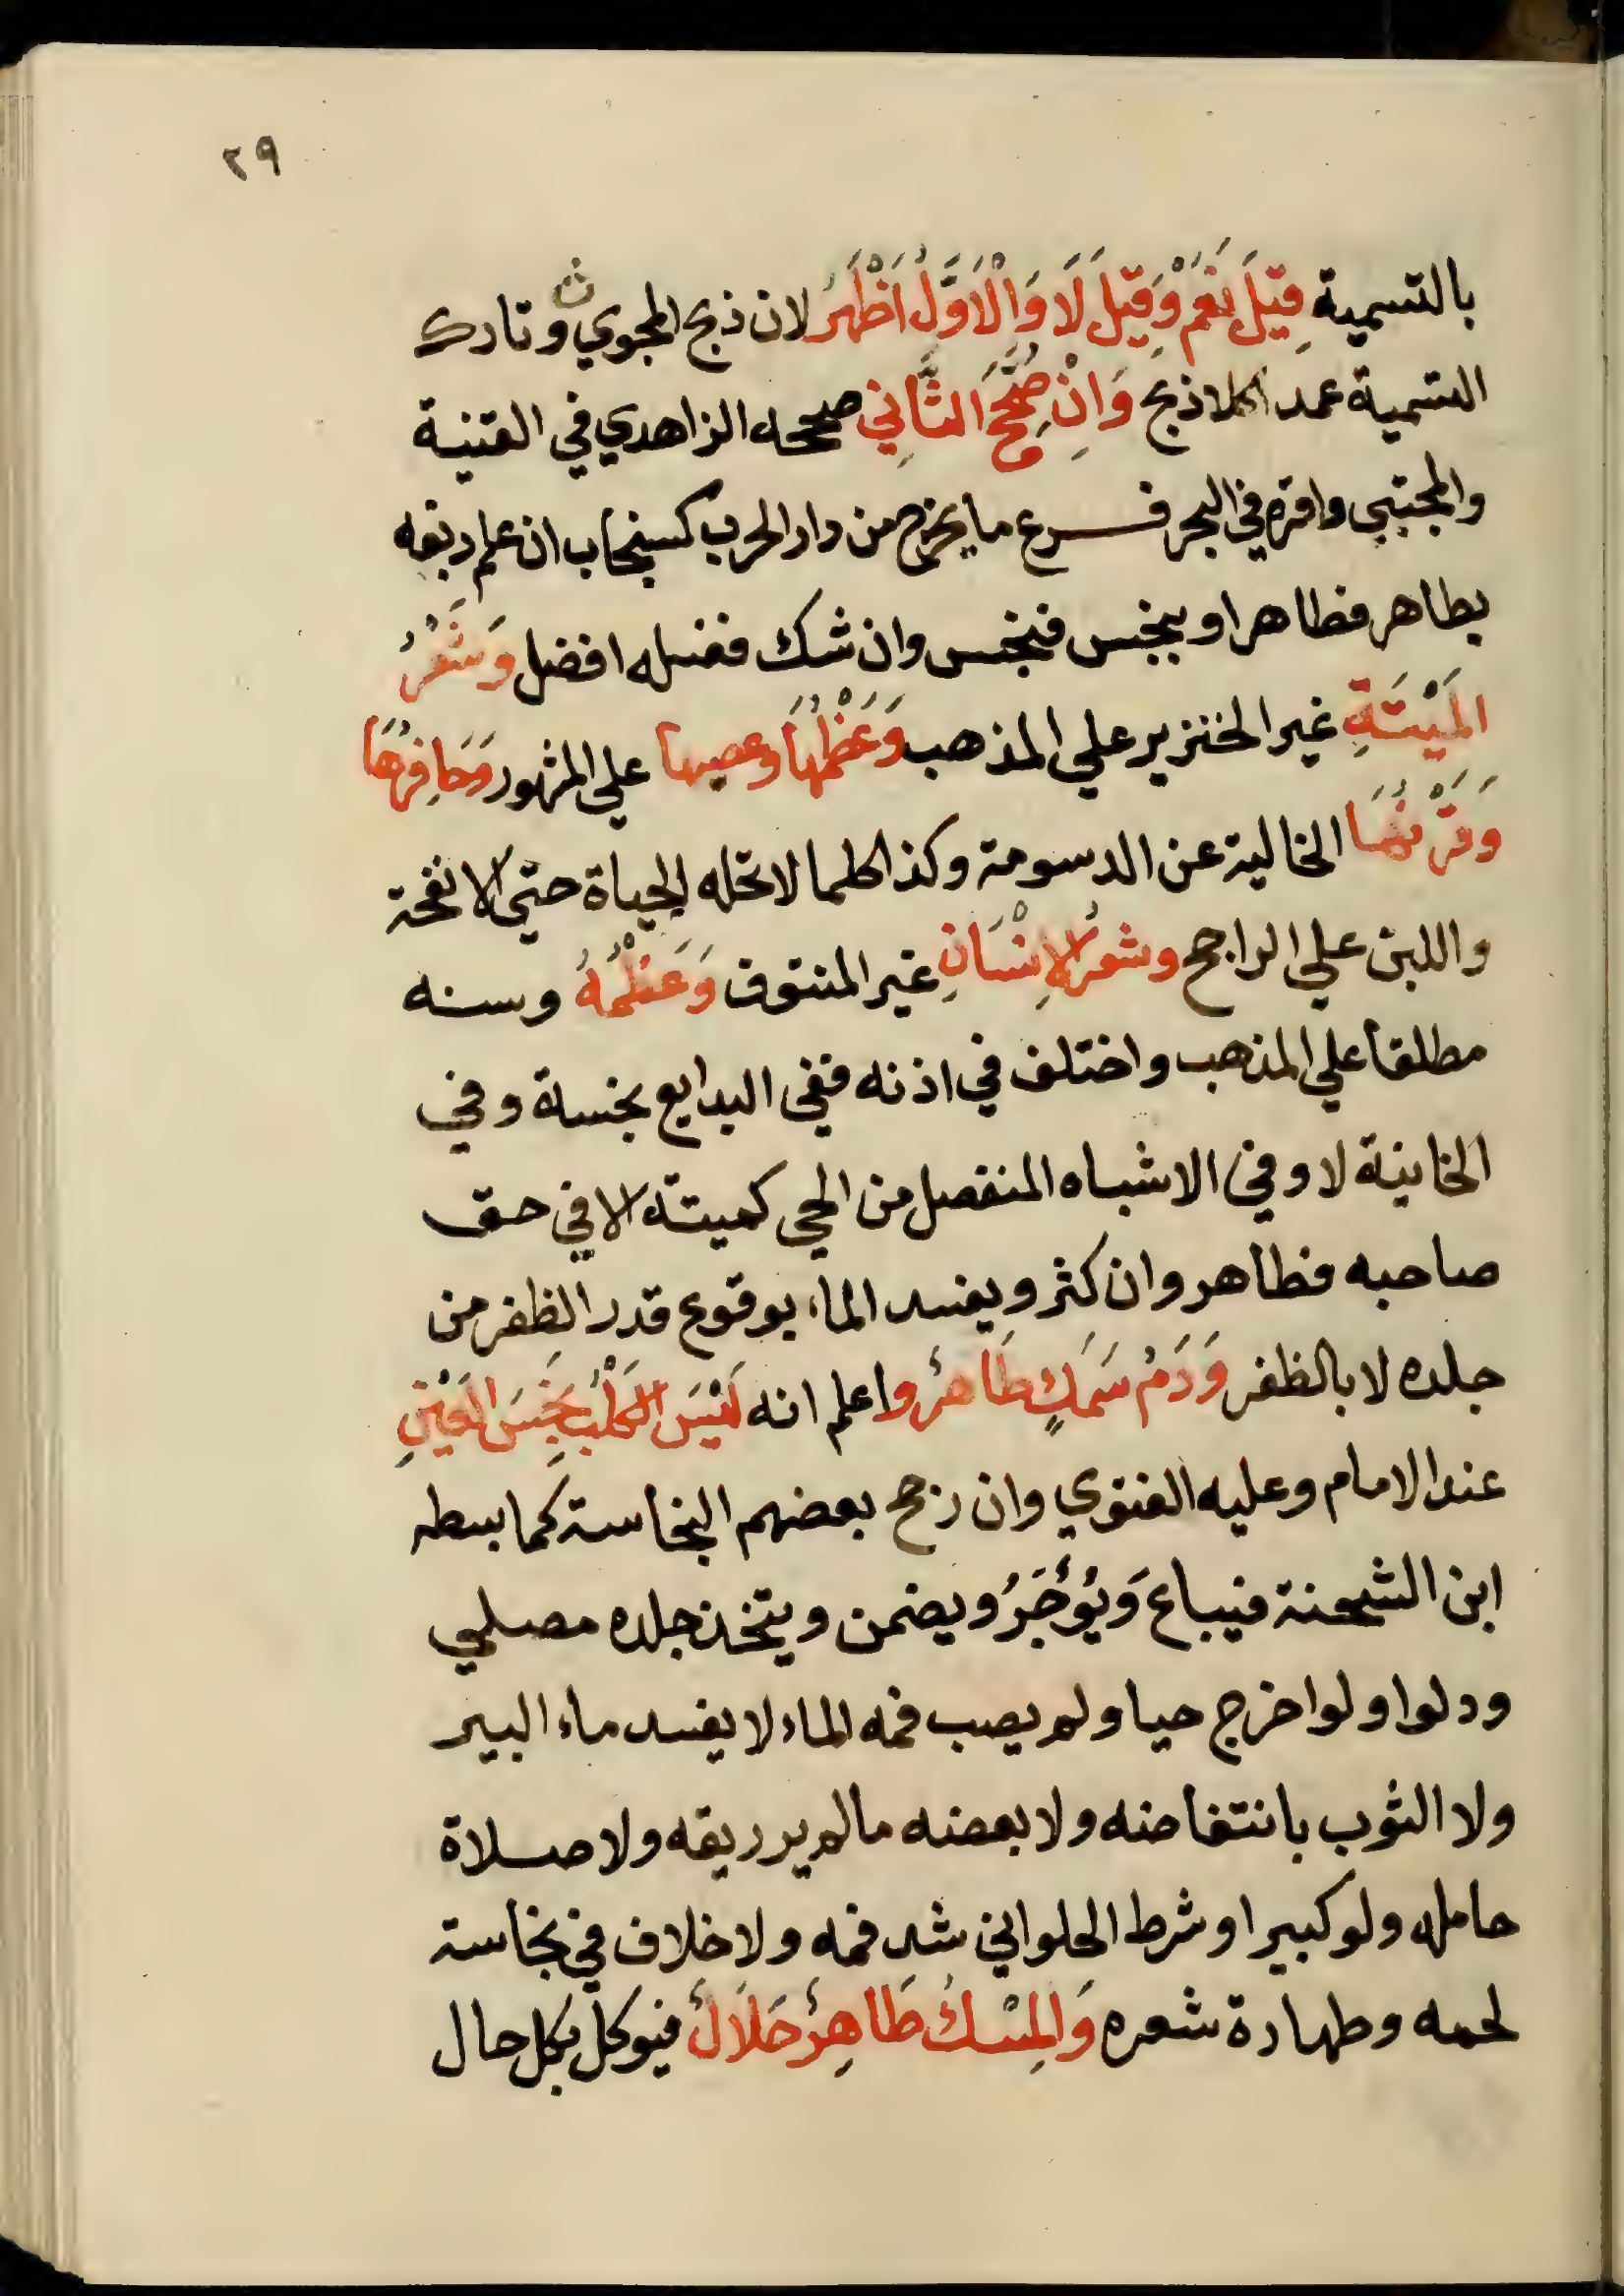 ٢٩
بالتسمية قِيْلَ نَعَمْ وَقِيْلَ لَا وَالْاَوَّلُ اَظْهَرُ لان ذبح المجوسي وتارك
التسمية عمدا كلا ذبح وَاِنْ صُحِّحَ الثَّانِي صححه الزاهدي في القنية
والمجتبي واقره في البحر فرع ما يخرج من دار الحرب كسنجاب ان علم دبغه
بطاهر فطاهر او بنجس فنجس وان شك فغسله افضل وَشَعْرُ
المَيْتَةِ غير الخنزير علي المذهب وَعَظْمُهَا وعصبها علي المشهور وَحَافِرُهَا
وَقَرْنُهَا الخالية عن الدسومة وكذا كلما لا تحله الحياة حتي الانفحة
واللبن علي الراجح وشعر الاِنْسَانِ غير المنتوف وَعَظْمُهُ وسنه
مطلقا علي المذهب واختلف في اذنه ففي البدايع نجسة وفي
الخانية لا وفي الاشباه المنفصل من الحي كميتته الا في حق
صاحبه فطاهر وان كثر ويفسد الماء بوقوع قدر الظفر من
جلده لا بالظفر وَدَمُ سَمَكٍ طَاهِرٌ واعلم انه لَيْسَ الكَلْبُ بِنَجِسَ العَيْنِ
عند الامام وعليه الفتوي وان رجح بعضهم النجاسة كما بسطه
ابن الشحنة فيباع وَيُؤْجَرُ ويضمن ويتخذ جلده مصلي
ودلوا ولو اخرج حيا ولم يصب فمه الماء لا يفسد ماء البير
ولا الثوب بانتفاضه ولا بعضه مالم ير ريقه ولا صلاة
حامله ولو كبيرا وشرط الحلواني شد فمه ولا خلاف في نجاسة
لحمه وطهارة شعره وَالمِسْكُ طَاهِرٌ حَلَالٌ فيوكل بكل حال